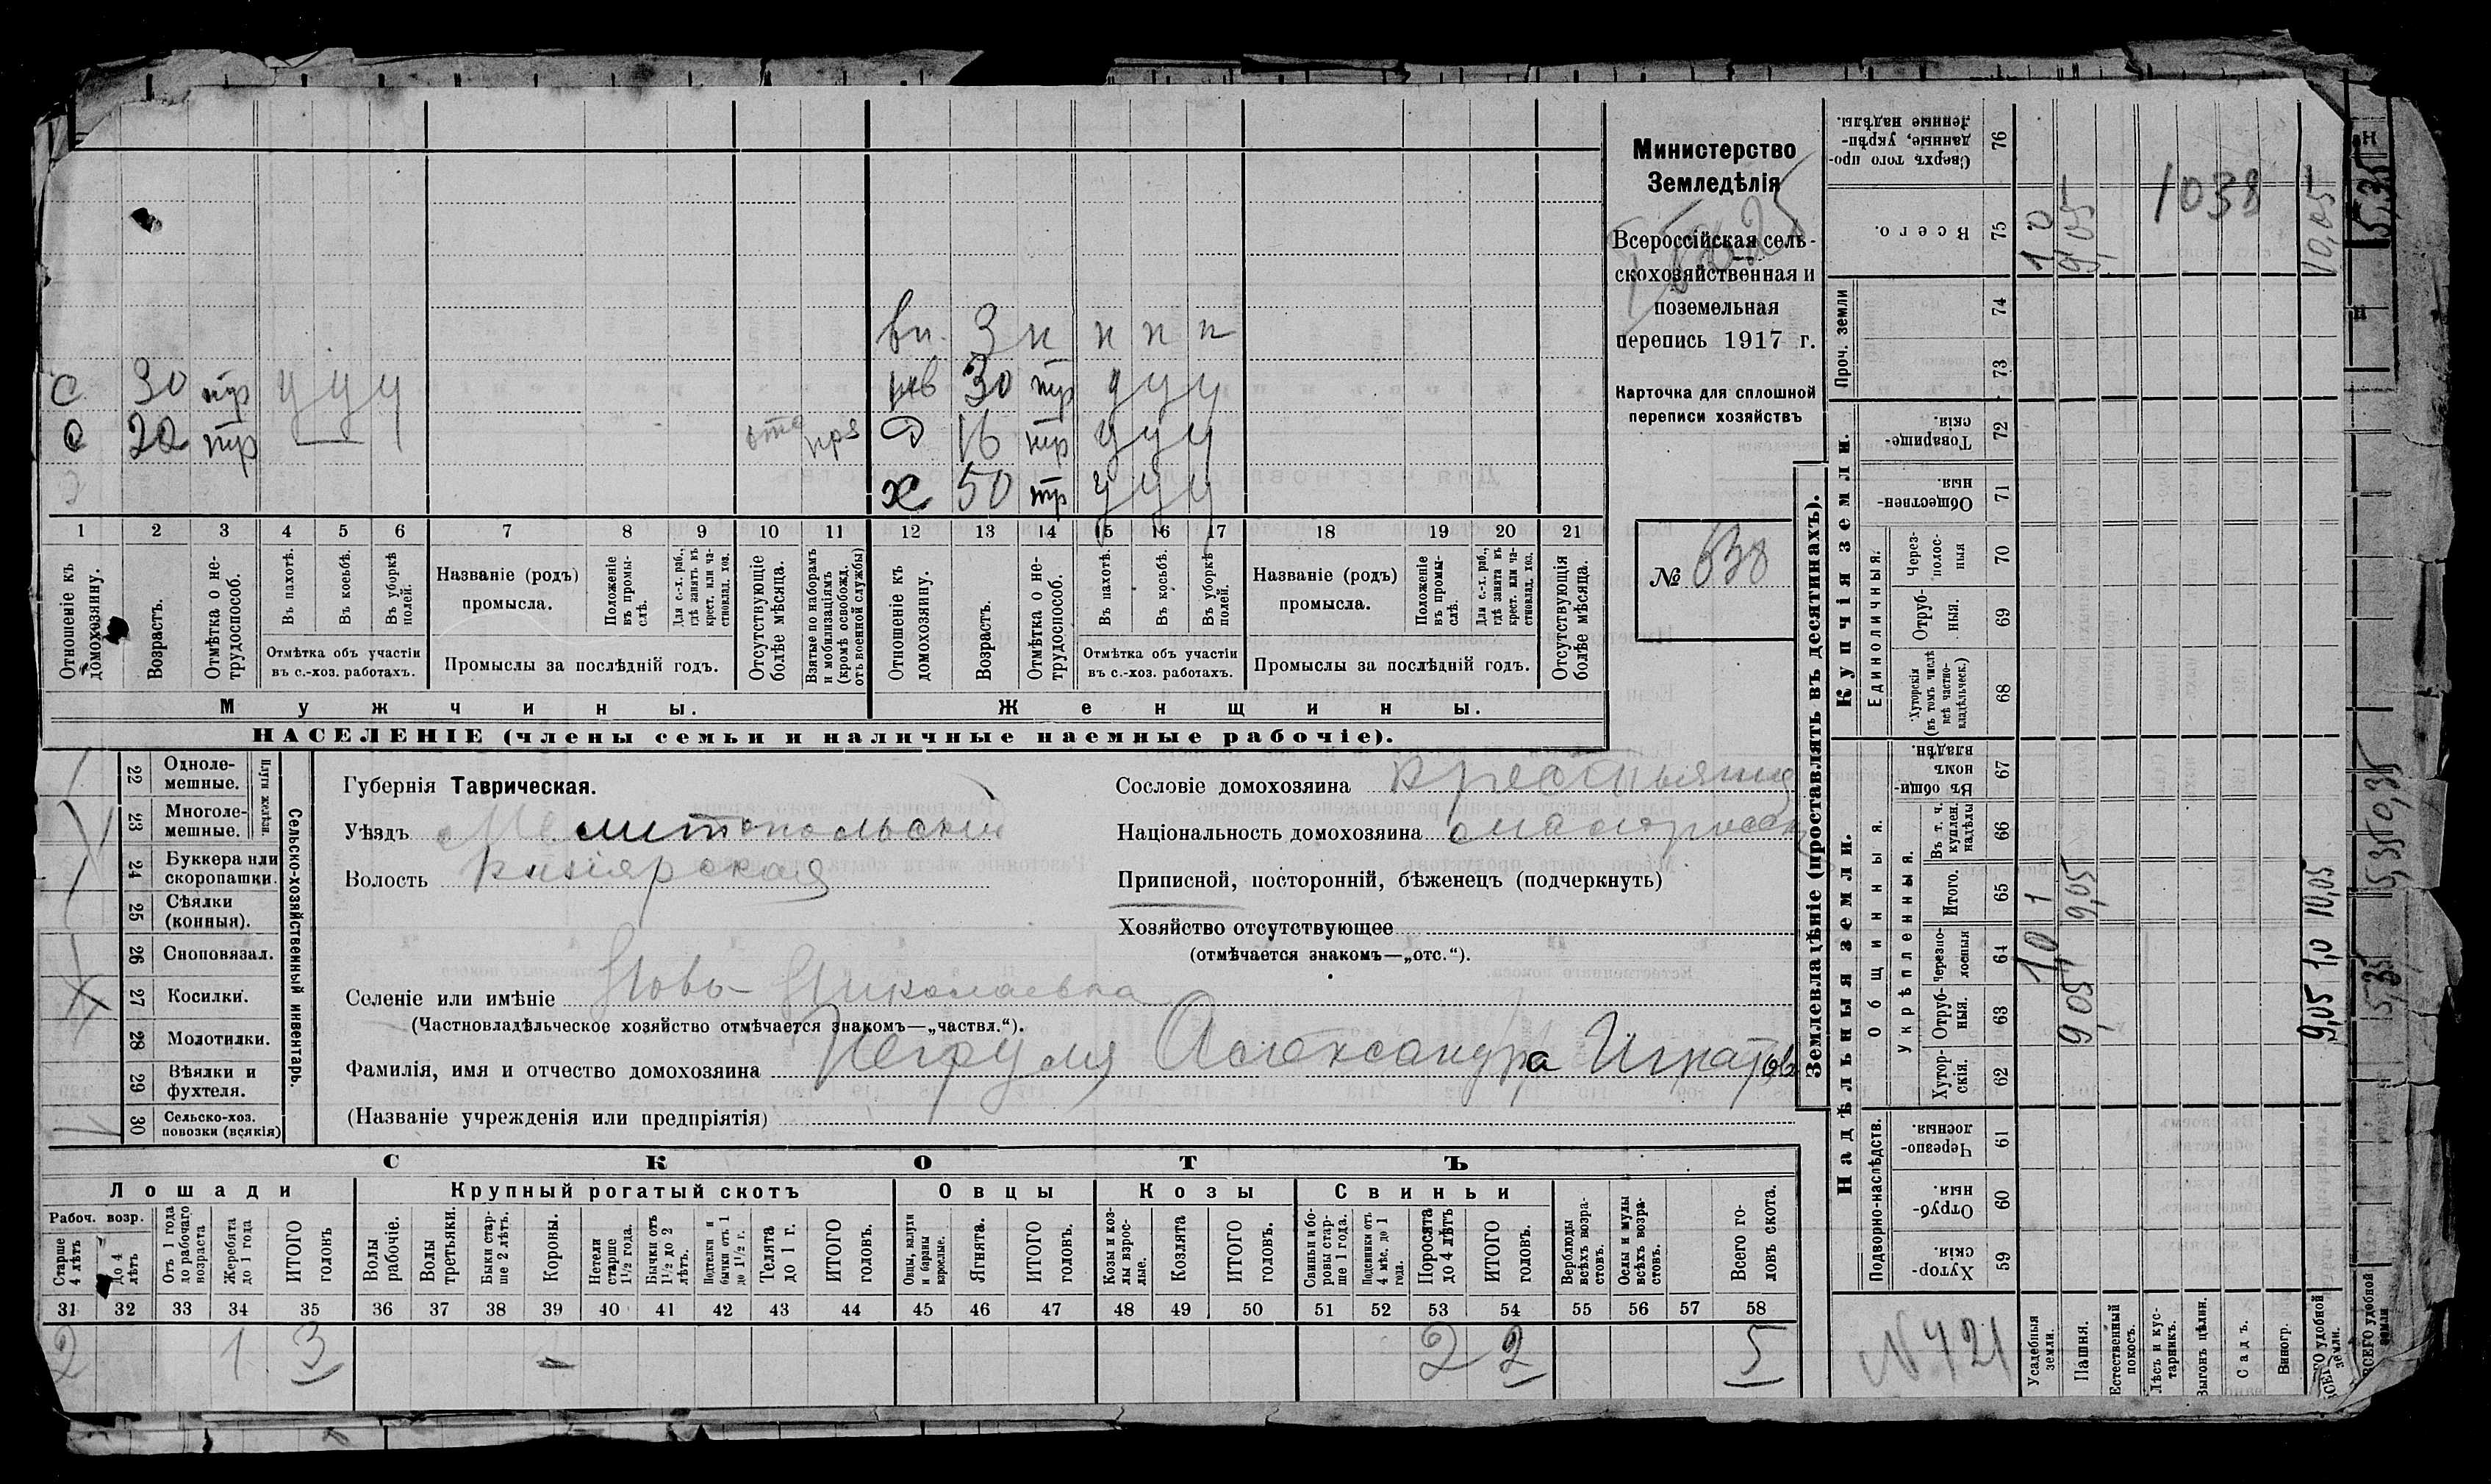 Министерство
Земледѣлія
Всероссійская сель-
скохозяйственная и
поземельная
перепись 1917 г.
Карточка для сплошной
переписи хозяйствъ
№ 638
вп. 3 н н н н
с 30 тр у у у
нев 30 тр у у у
с 22 тр — отс
д 16 тр у у у
х 50 тр у у у
1 2 3 4 5 6 7 8 9 10 11 12 13 14 15 16 17 18 19 20 21
Отношеніе къ домохозяину.
Возрастъ.
Отмѣтка о не-трудоспособ.
Въ пахотѣ.
Въ косьбѣ.
Въ уборкѣ полей.
Отмѣтка объ участіи
въ с.-хоз. работахъ.
Названіе (родъ)
промысла.
Положеніе въ промы-слѣ.
Для с.-х. раб., гдѣ занятъ въ крест. или ча-стновлад. хоз.
Промыслы за послѣдній годъ.
Отсутствующіе болѣе мѣсяца.
Взятые по наборамъ и мобилизаціямъ (кромѣ освобожд. отъ военной службы)
Отношеніе къ домохозяину.
Возрастъ.
Отмѣтка о не-трудоспособ.
Въ пахотѣ.
Въ косьбѣ.
Въ уборкѣ полей.
Отмѣтка объ участіи
въ с.-хоз. работахъ.
Названіе (родъ)
промысла.
Положеніе въ промы-слѣ.
Для с.-х. раб., гдѣ занята въ крест. или ча-стновлад. хоз.
Промыслы за послѣдній годъ.
Отсутствующія болѣе мѣсяца.
Мужчины.
Женщины.
НАСЕЛЕНІЕ (члены семьи и наличные наемные рабочіе).
22 Одноле-мешные.
23 Многоле-мешные.
Плуги желѣзн.
24 Буккера или скоропашки.
25 Сѣялки (конныя).
26 Сноповязал.
27 Косилки.
28 Молотилки.
29 Вѣялки и фухтеля.
30 Сельско-хоз. повозки (всякія)
Сельско-хозяйственный инвентарь.
Губернія Таврическая.
Уѣздъ Мелитопольскій
Волость Кизіярская
Селеніе или имѣніе Ново-Николаевка
(Частновладѣльческое хозяйство отмѣчается знакомъ—„частвл.“).
Фамилія, имя и отчество домохозяина Негруля Александра Игнатов
(Названіе учрежденія или предпріятія)
Сословіе домохозяина крестьянка
Національность домохозяина малоросс
Приписной, посторонній, бѣженецъ (подчеркнуть)
Хозяйство отсутствующее
(отмѣчается знакомъ—„отс.“).
СКОТЪ
Лошади
Крупный рогатый скотъ
Овцы
Козы
Свиньи
Рабоч. возр.
Старше 4 лѣтъ
До 4 лѣтъ
Отъ 1 года до рабочаго возраста
Жеребята до 1 года
ИТОГО головъ
Волы рабочіе.
Волы третьяки.
Быки стар-ше 2 лѣтъ.
Коровы.
Нетели старше 1½ года.
Бычки отъ 1½ до 2 лѣтъ.
Подтелки и бычки отъ 1 до 1½ г.
Телята до 1 г.
ИТОГО головъ.
Овцы, валухи и бараны взрослые.
Ягнята.
ИТОГО головъ.
Козы и коз-лы взрос-лые.
Козлята
ИТОГО головъ.
Свиньи и бо-ровы стар-ше 1 года.
Подсвинки отъ 4 мѣс. до 1 года.
Поросята до 4 лѣтъ
ИТОГО головъ.
Верблюды всѣхъ возра-стовъ.
Ослы и мулы всѣхъ возра-стовъ.
Всего го-ловъ скота.
31 32 33 34 35 36 37 38 39 40 41 42 43 44 45 46 47 48 49 50 51 52 53 54 55 56 57 58
2 1 3 - 2 2 5
Землевладѣніе (проставлять въ десятинахъ).
Купчія земли.
Надѣльныя земли.
Сверхъ того про-данные, укрѣп-ленные надѣлы. 76
Всего. 75 1,0 9,05 1038 10,05
Проч. земли 74 73
Товарище-скія. 72
Обществен-ныя. 71
Единоличныя.
Через-полос-ныя 70
Отруб-ныя. 69
Хуторскія (въ томъ числѣ всѣ частно-владѣльческ.) 68
Общинныя.
Въ общи-номъ владѣн. 67
Укрѣпленныя.
Въ т. ч. куплен. надѣлы 66
Итого. 65 1 9,05 10,05
Черезпо-лосныя 64 1,0 1,0
Отруб-ныя. 63 9,05 9,05
Хутор-скія. 62
Подворно-наслѣдств.
Черезпо-лосныя 61
Отруб-ныя. 60
Хутор-скія. 59
N 421
Усадебныя земли.
Пашня.
Естественный покосъ.
Лѣсъ и кус-тарникъ.
Выгонъ цѣлин.
Садъ.
Виногр.
ВСЕГО удобной земли.
ВСЕГО удобной земли
5,35
5,35